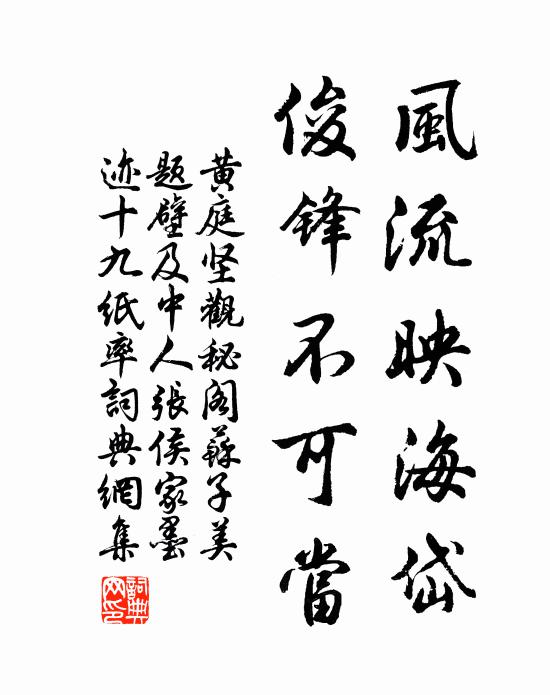 風流映海岱
俊鋒不可當
黄庭坚觀秘阁蘇子美
题壁及中人張侯家墨
迹十九紙率詞典網集
詞典網印